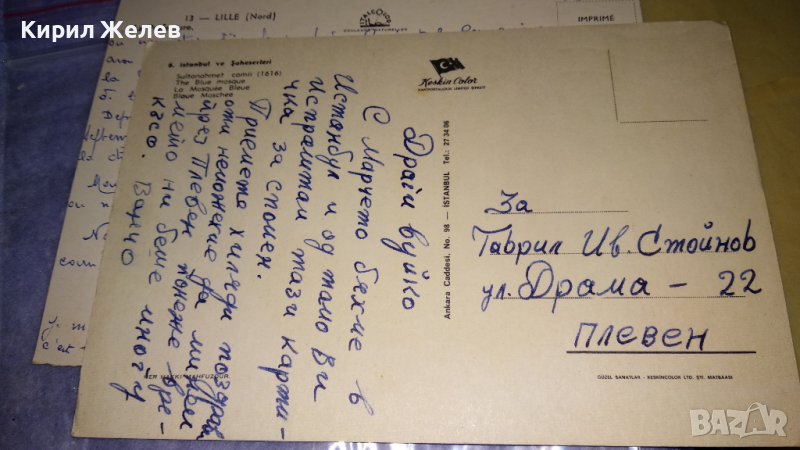 Кирил Желев
13 — LILLE (Nord)
IMPRIME
6. Istanbul ve Şaheserleri
Sultanahmet camii (1616)
The Blue mosque
La Mosquée Bleue
Blaue Moschee
Keskin Color
Ankara Caddesi, No. 98 — ISTANBUL Tel.: 27 34 06
Драги вуйко
С Марчето бяхме в
Истанбул и од тамо Ви
Испраштам тази карти-
чка за спомен.
Приемете хиляди поздрави
оти неможехме да минеме
през Плевен понеже вре-
мето ни беше многу
късо. Ванчо
За
Гаврил Ив. Стойнов
ул. Драма - 22
ПЛЕВЕН
HER HAKKI MAHFUZDUR.
GÜZEL SANATLAR - KESKINCOLOR LTD. ŞTI. MATBAASI
BAZAR
bg